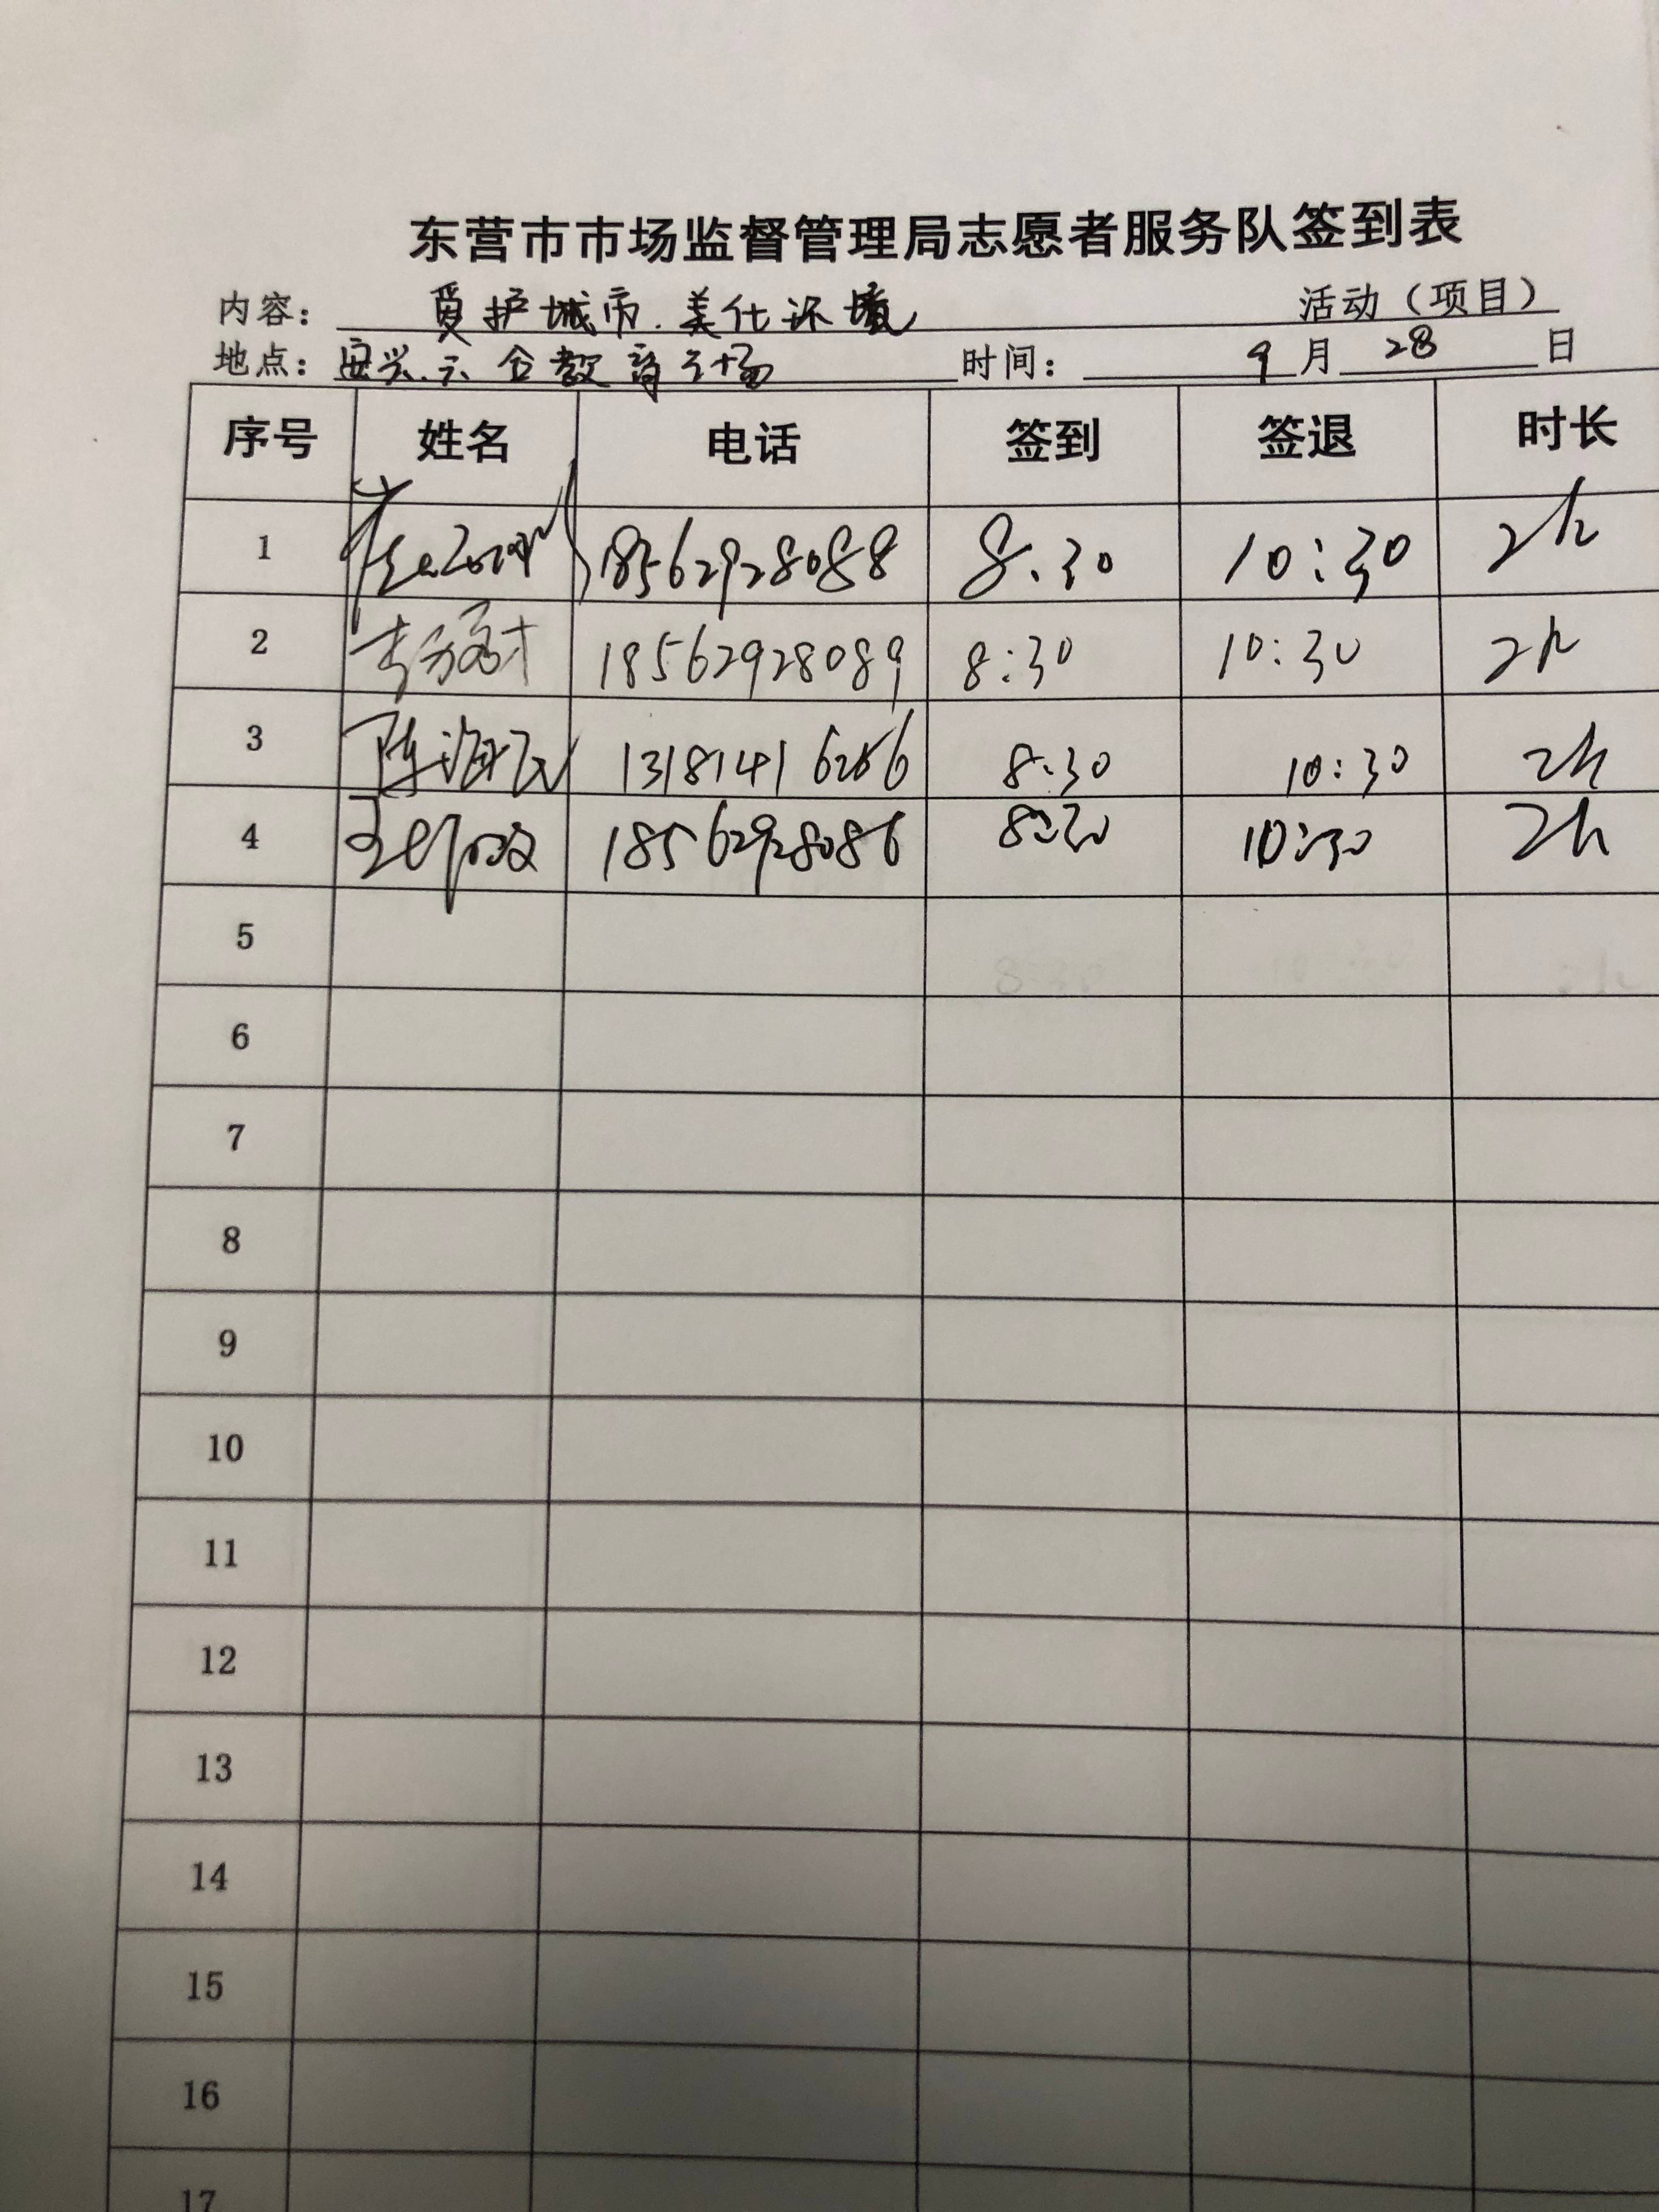 东营市市场监督管理局志愿者服务队签到表
内容：护城市.美化环境 活动（项目）
地点：安兴.教育广场 时间：9月28日
序号 姓名 电话 签到 签退 时长
1 18562928088 8:30 10:30 2h
2 18562928089 8:30 10:30 2h
3 陈海 8:30 10:30 2h
4 18562928086 8:30 10:30 2h
5
6
7
8
9
10
11
12
13
14
15
16
17